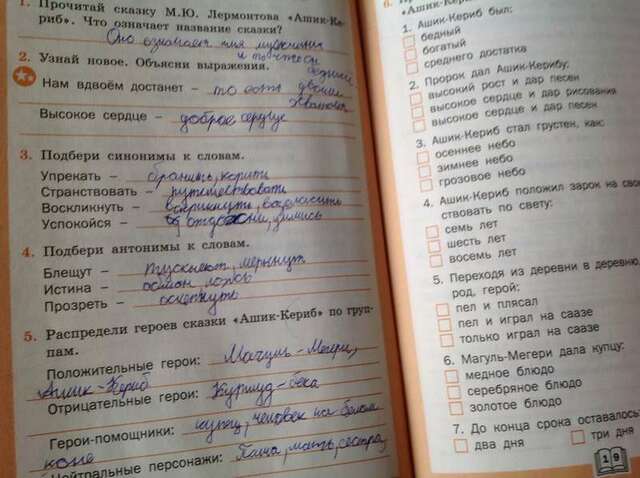 1. Прочитай сказку М.Ю. Лермонтова «Ашик-Ке-
риб». Что означает название сказки?
Оно означает имя
и то что он
бедный
2. Узнай новое. Объясни выражения.
Нам вдвоём достанет – то есть двоим
Высокое сердце – доброе сердце
3. Подбери синонимы к словам.
Упрекать – бранить, корить
Странствовать – путешествовать
Воскликнуть – вскрикнуть, возгласить
Успокойся –
4. Подбери антонимы к словам.
Блещут – тускнеют, меркнут
Истина – обман, ложь
Прозреть – ослепнуть
5. Распредели героев сказки «Ашик-Кериб» по груп-
пам.
Положительные герои: Магуль-Мегери,
Ашик-Кериб
Отрицательные герои: Куршуд-бека
Герои-помощники: купец, человек на белом
коне
Нейтральные персонажи: мать, сестра,
6.
«Ашик-Кериб
1. Ашик-Кериб был:
бедный
богатый
среднего достатка
2. Пророк дал Ашик-Керибу:
высокий рост и дар песен
высокое сердце и дар рисования
высокое сердце и дар песен
3. Ашик-Кериб стал грустен, как:
осеннее небо
зимнее небо
грозовое небо
4. Ашик-Кериб положил зарок на св
ствовать по свету:
семь лет
шесть лет
восемь лет
5. Переходя из деревни в деревню,
род, герой:
пел и плясал
пел и играл на саазе
только играл на саазе
6. Магуль-Мегери дала купцу:
медное блюдо
серебряное блюдо
золотое блюдо
7. До конца срока оставалось:
два дня
три дня
19